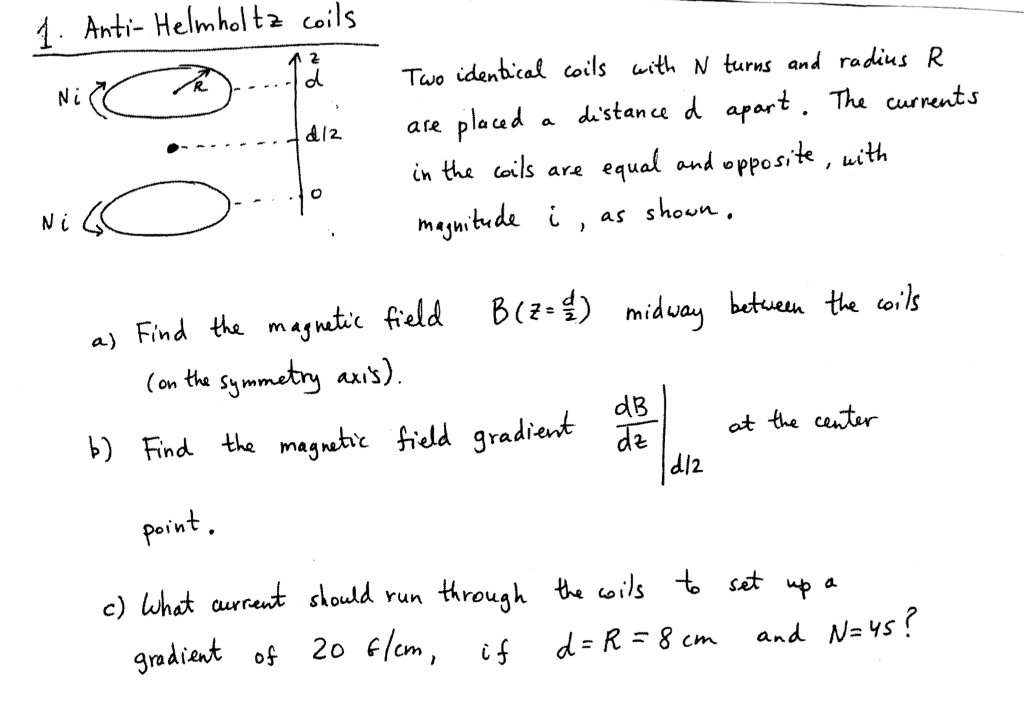 1. Anti-Helmholtz coils
z
R
d
Ni
d/2
0
Ni
Two identical coils with N turns and radius R
are placed a distance d apart. The currents
in the coils are equal and opposite, with
magnitude i, as shown.
a) Find the magnetic field B(z=d/2) midway between the coils
(on the symmetry axis).
b) Find the magnetic field gradient dB/dz |d/2 at the center
point.
c) What current should run through the coils to set up a
gradient of 20 G/cm, if d=R=8cm and N=45?